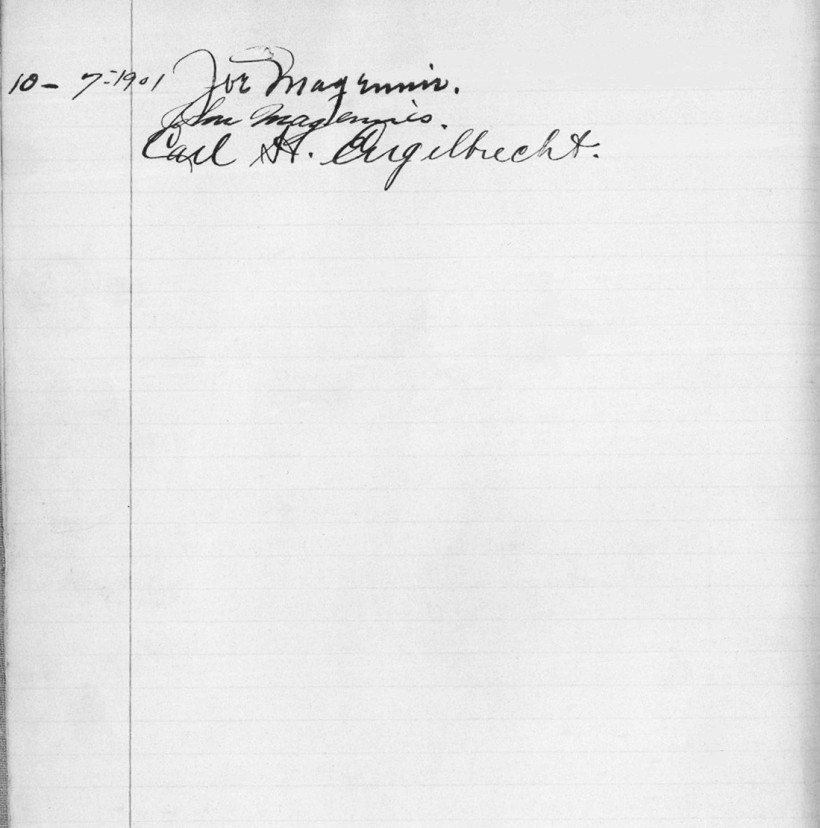 10 - 7-1901 Joe Magennis.
John Magennis.
Carl H. Engilbrecht.